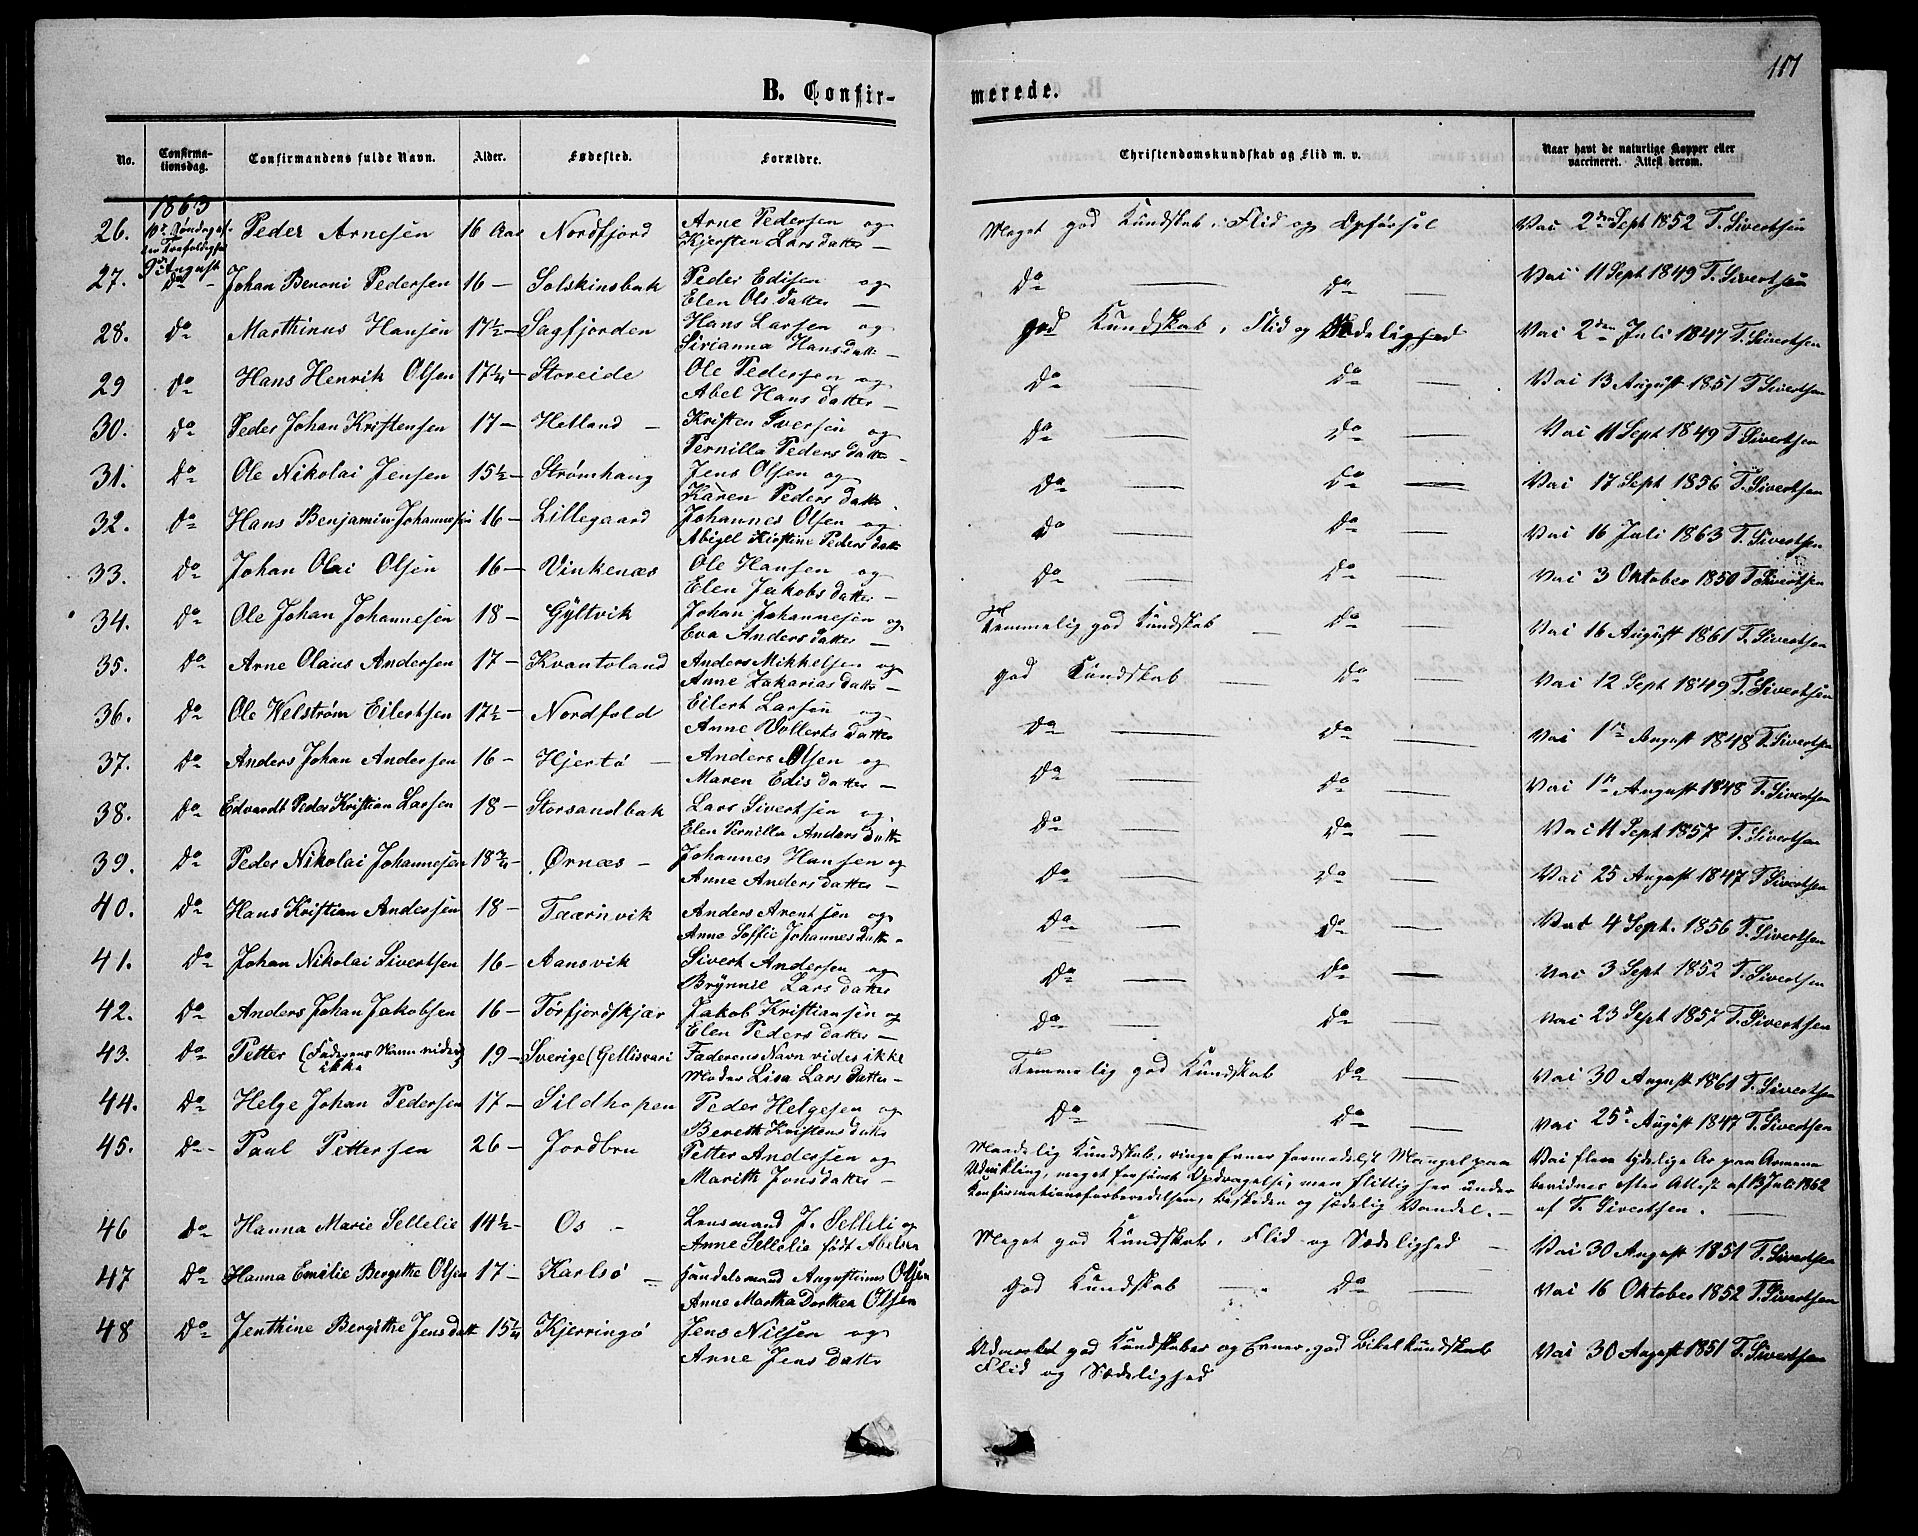 111
B. Confir-
merede.
No.
Confirma-
tionsdag.
Confirmandens fulde Navn.
Alder.
Fødested.
Forældre.
Christendomskundskab og Flid m. v.
Naar havt de naturlige Kopper eller
vaccineret. Attest derom.
1863
26. 10de Søndag Peder Arnesen 16 Aar Nordfjord Arne Pedersen og Meget god Kundskab, Flid og Opførsel Vac 2den Sept 1852 T. Sivertsen
Trefoldighed Kjersten Larsdatter —
9de August
27. Do Johan Benoni Pedersen 16 — Solskinsbak Peder Edisen og Do — Do — Vac 11 Sept 1849 T. Sivertsen
Elen Olsdatter —
28. Do Marthinus Hansen 17½ — Sagfjorden Hans Larsen og god Kundskab, Flid og Sædelighed Vac 2den Juli 1847 T. Sivertsen
Sirianna Hansdatt —
29 Do Hans Henrik Olsen 17¼ — Storeide Ole Pedersen og Do — Do — Vac 13 August 1851 T. Sivertsen
Abel Hansdatter —
30. Do Peder Johan Kristensen 17 — Helland — Kristen Iversen og Do — Do — Vac 11 Sept 1849 T. Sivertsen
Pernilla Pedersdatter —
31. Do Ole Nikolai Jensen 15½ — Strømhaug Jens Olsen og Do — Do — Vac 17 Sept 1856 T. Sivertsen
Karen Pedersdatter
32. Do Hans Benjamin Johannesen 16 — Lillegaard Johannes Olsen og Do — Do — Vac 16 Juli 1863 T. Sivertsen
Abigel Kirstine Pedersdatt
33. Do Johan Olai Olsen 16 — Vinkenæs Ole Hansen og Do — Do — Vac 3 Oktober 1850 T. Sivertsen
Elen Jakobsdatter —
34. Do Ole Johan Johannesen 18 — Gyltvik Johan Johannesen og Temmelig god Kundskab — Do — Vac 16 August 1861 T. Sivertsen
Eva Andersdatter —
35. Do Arne Olaus Andersen 17 — Kvantoland Anders Mikkelsen og god Kundskab — Do — Vac 12 Sept 1849 T. Sivertsen
Anne Zakariasdatt —
36. Do Ole Welstrøm Eilertsen 17½ — Nordfold Eilert Larsen og Do — Do — Vac 1ste August 1848 T. Sivertsen
Anne Vollertsdatter
37. Do Anders Johan Andersen 16 — Hjertø — Anders Olsen og Do — Do — Vac 1ste August 1848 T. Sivertsen
Maren Edisdatter —
38. Do Edvardt Peder Kristian Larsen 18 — Storsandbak Lars Sivertsen og Do — Do — Vac 11 Sept 1857 T. Sivertsen
Elen Pernilla Andersdatt
39. Do Peder Nikolai Johannesen 18¾ — Ørnæs — Johannes Hansen og Do — Do — Vac 25 August 1847 T. Sivertsen
Anne Andersdatter —
40. Do Hans Kristian Andersen 18 — Taarnvik Anders Arentsen og Do — Do — Vac 4 Sept. 1856 T. Sivertsen
Anne Soffie Johannesdatt —
41. Do Johan Nikolai Sivertsen 16 — Aansvik Sivert Andersen og Do — Do — Vac 3 Sept 1852 T. Sivertsen
Brynnil Larsdatter
42. Do Anders Johan Jakobsen 16 — Tørfjordskjær Jakob Kristiansen og Do — Do — Vac 23 Sept 1857 T. Sivertsen
Elen Pedersdatter —
43. Do Petter (Faderens Navn vides 19 — Sverige (Gellisvari Faderens Navn vides ikke Temmelig god Kundskab Do — Vac 30 August 1861 T. Sivertsen
ikke Moder Lisa Larsdatter —
44. Do Helge Johan Pedersen 17 — Sildhopen Peder Helgesen og Do — Do — Vac 25de August 1847 T. Sivertsen
Bereth Kristensdatt
45. Do Paul Pettersen 26 — Jordbru Petter Andersen og Maadelig Kundskab, ringe Evner formedelst Mangel paa Vac flere tydelige Ar paa Armene
Marith Jonsdatter — Udvikling, meget forsømt Opdragelse, men flittig her under bevidnes efter Attest af 13 Juli 1862
Konfirmationsforberedelsen, beskeden og sædelig Vandel. — af T. Sivertsen. —
46 Do Hanna Marie Sellelie 14½ — Os — Lensmand J. Selleli og Meget god Kundskab, Flid og Sædelighed — Vac 30 August 1851 T. Sivertsen
Anne Sellelie født Abelsen
47 Do Hanna Emilie Bergithe Olsen 17 — Karlsø — Handelsmand Augustinus Olsen god Kundskab — Do — Vac 16 Oktober 1852 T. Sivertsen
Anne Martha Dorthea Olsen
48 Do Jenthine Bergithe Jensdatt 15¼ Kjerringø Jens Nilsen og Udmærket god Kundskaber og Evner, god Bibelkundskab Vac 30 August 1851 T. Sivertsen
Anne Jensdatter Flid og Sædelighed